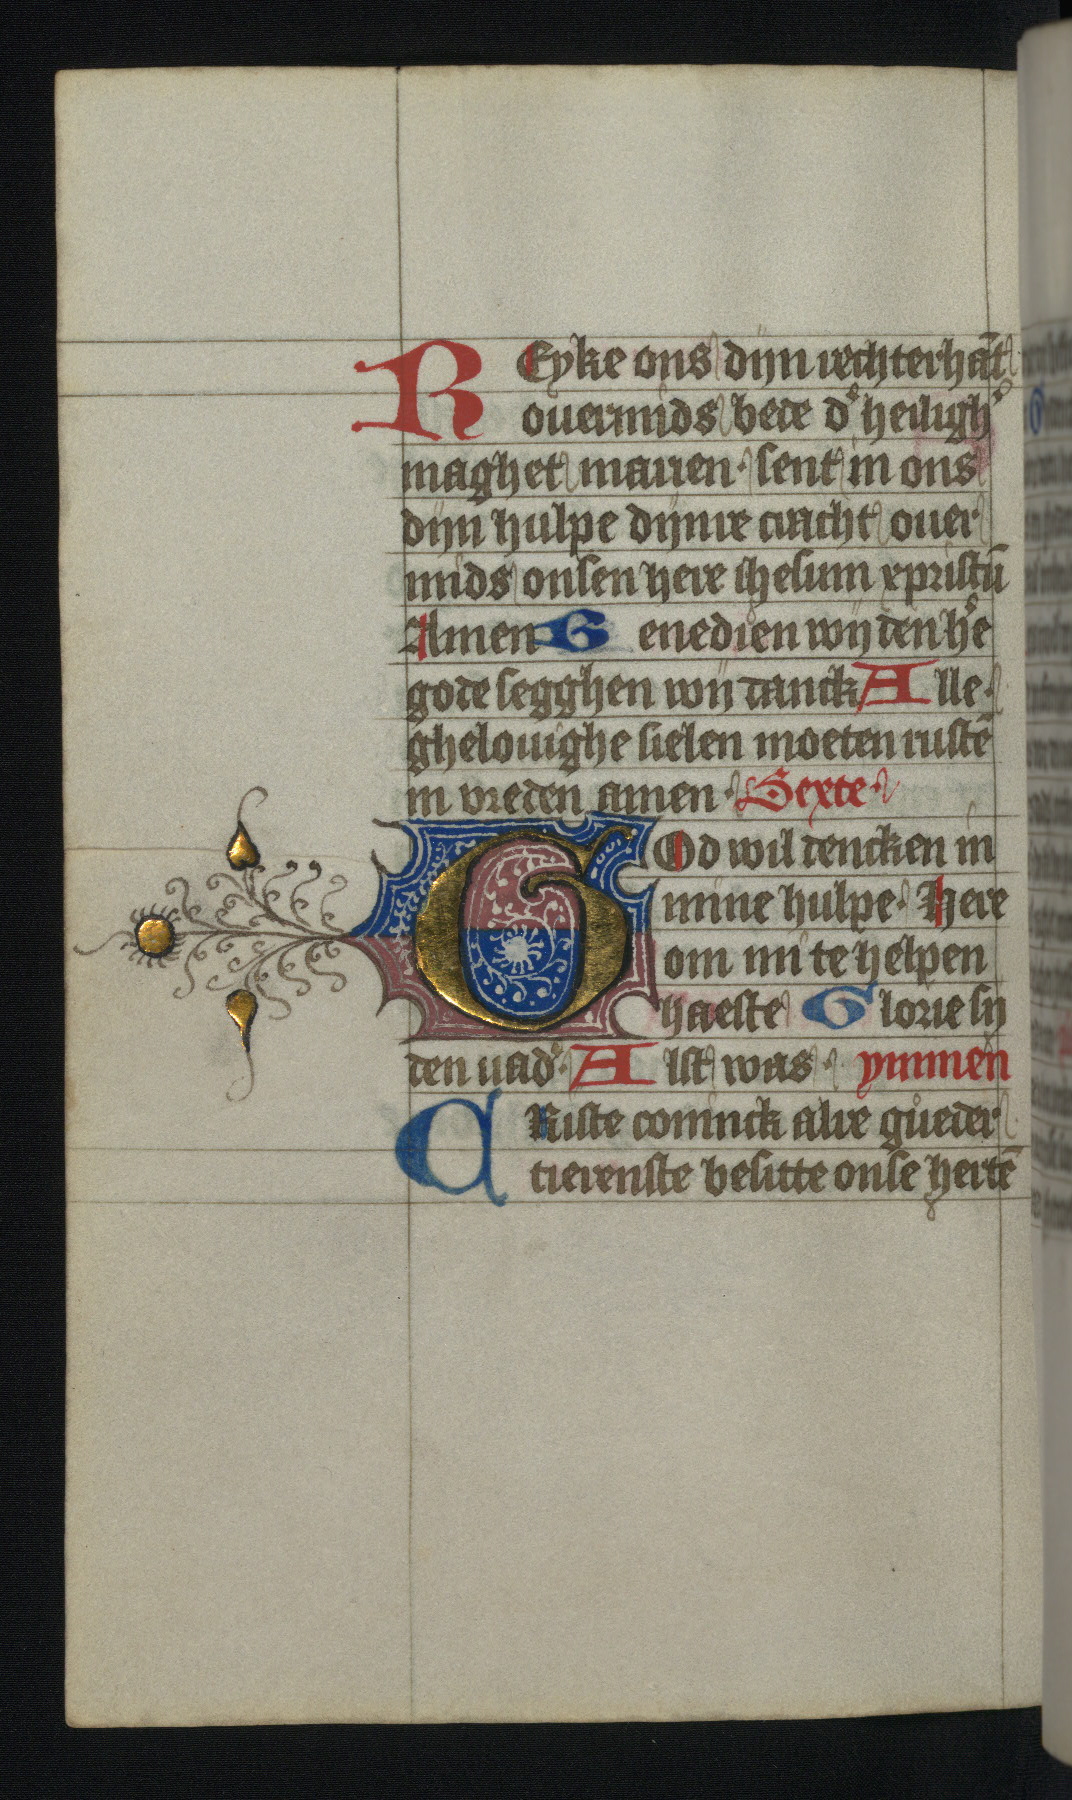 REyke ons dijn rechterhāt
ouermids bede d' heiligh'
maghet marien· sent in ons
dijn hulpe dijnre cracht ouer
mids onsen here ihesum xpristū
Amen Genedien wij den h'e
gode segghen wij danck Alle·
ghelouighe sielen moeten rustē
in vreden amen· Sexte·
GOd wil dencken in
mine hulpe· Here
om mi te helpen
haeste Glorie sij
den vad'· Alst was· ymmen
CRiste coninck alre gůeder
tierenste besitte onse hertē